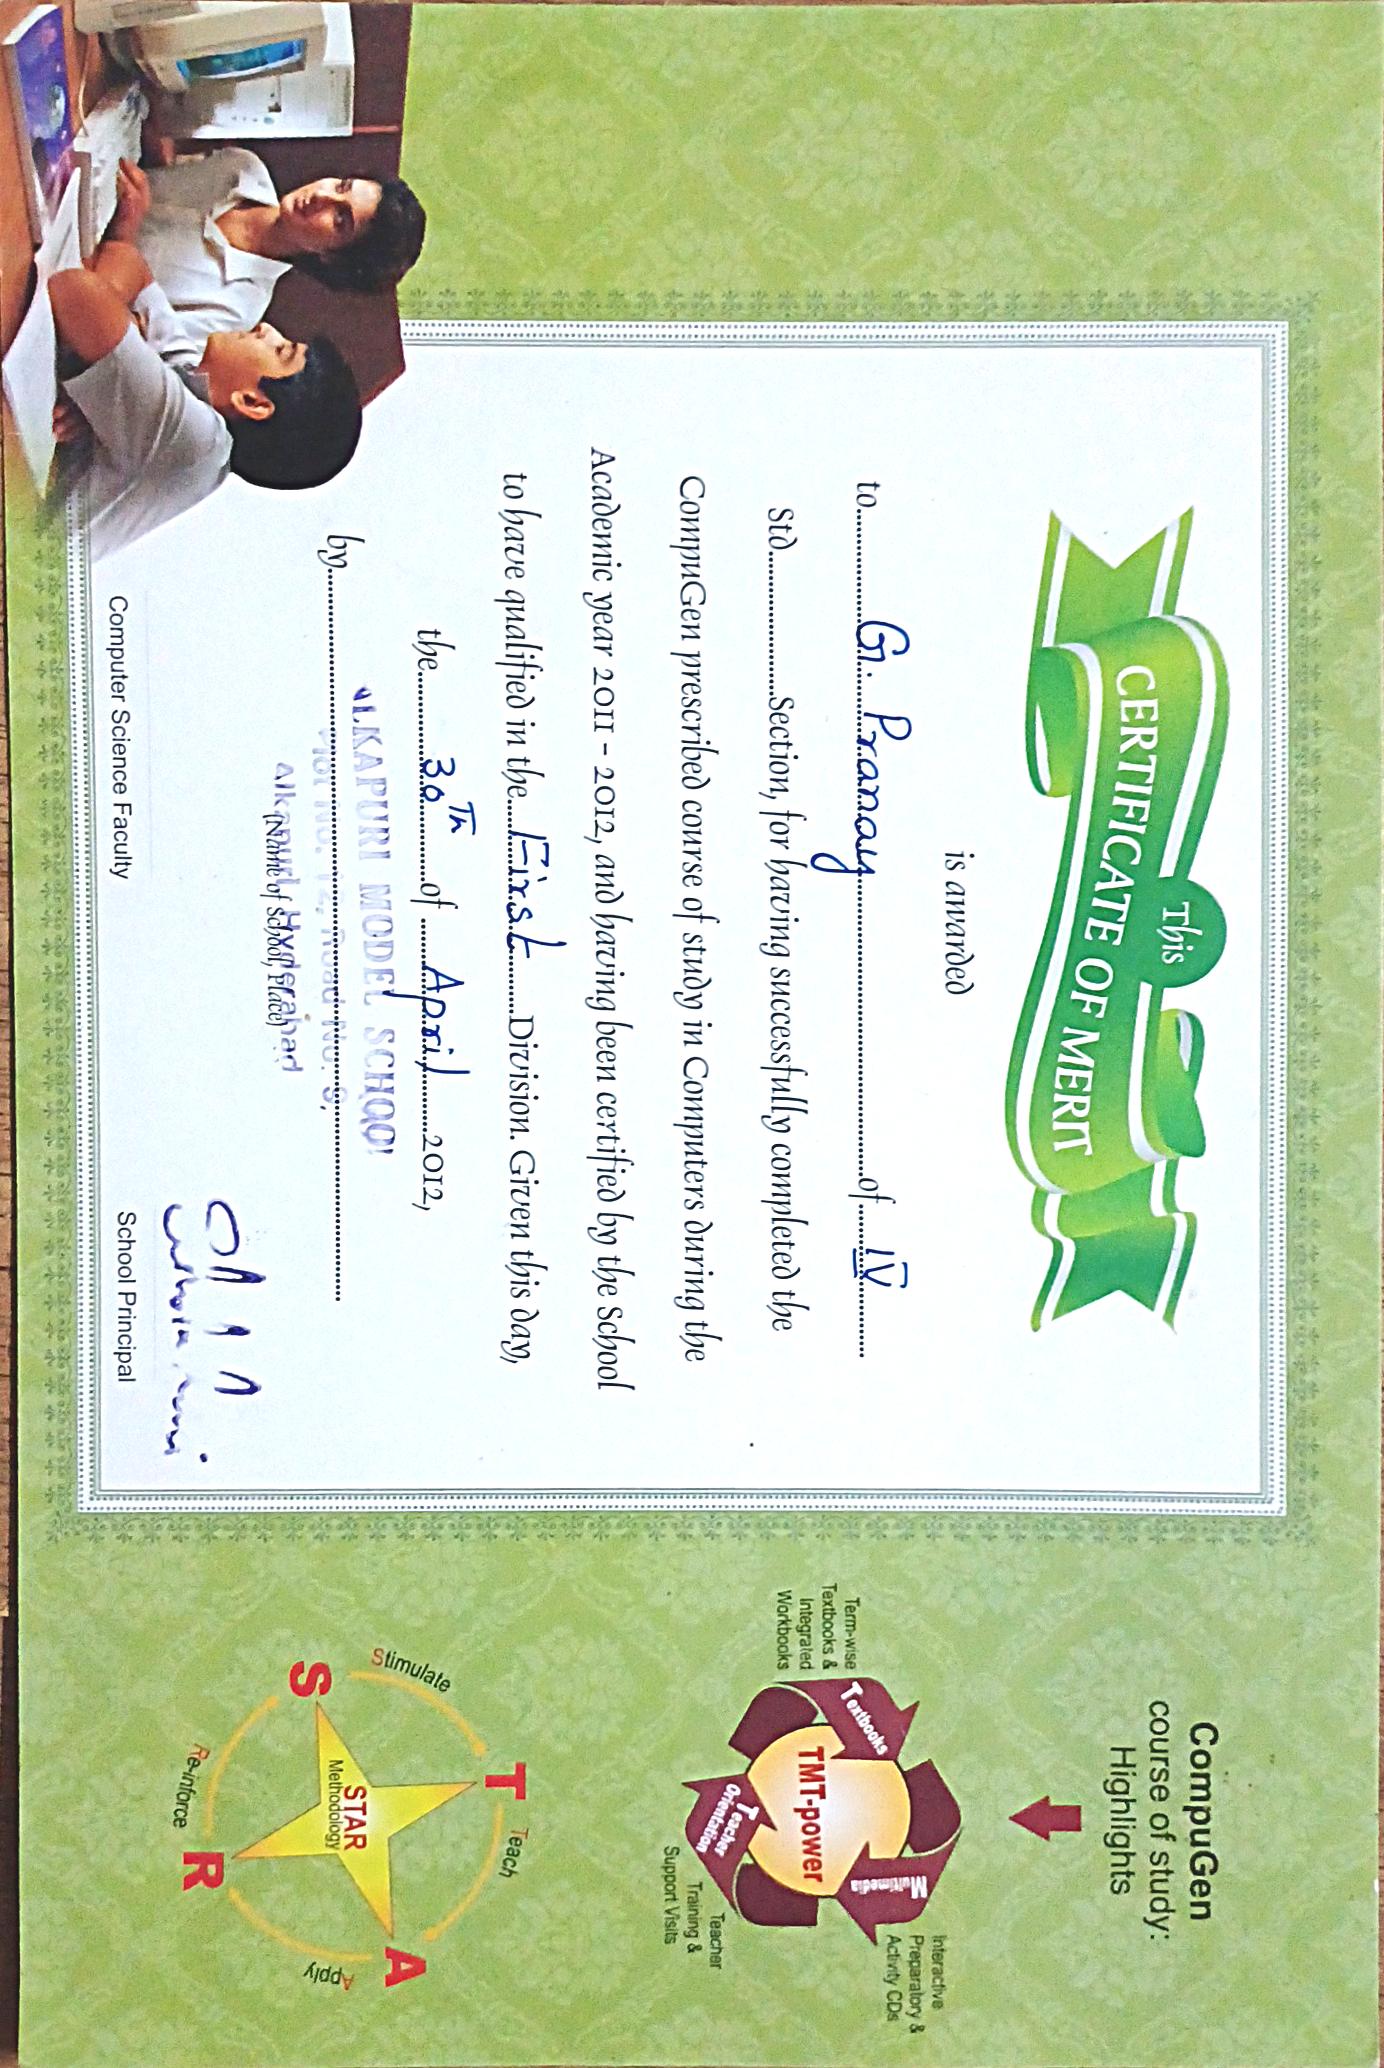 This
CERTIFICATE OF MERIT
is awarded
to G. Pranay of IV
Std. Section, for having successfully completed the
CompuGen prescribed course of study in Computers during the
Academic year 2011 - 2012, and having been certified by the School
to have qualified in the First Division. Given this day,
the 30Th of April 2012,
ALKAPURI MODEL SCHOOL
by
Road No. 9,
Alkapuri Hyderabad
(Name of School, Place)
Computer Science Faculty
School Principal
CompuGen
course of study:
Highlights
Term-wise
Textbooks &
Integrated
Workbooks
Textbooks
TMT-power
Multimedia
Interactive
Preparatory &
Activity CDs
Teacher
Orientation
Teacher
Training &
Support Visits
Stimulate
S
T
Teach
STAR
Methodology
Re-inforce
R
A
Apply